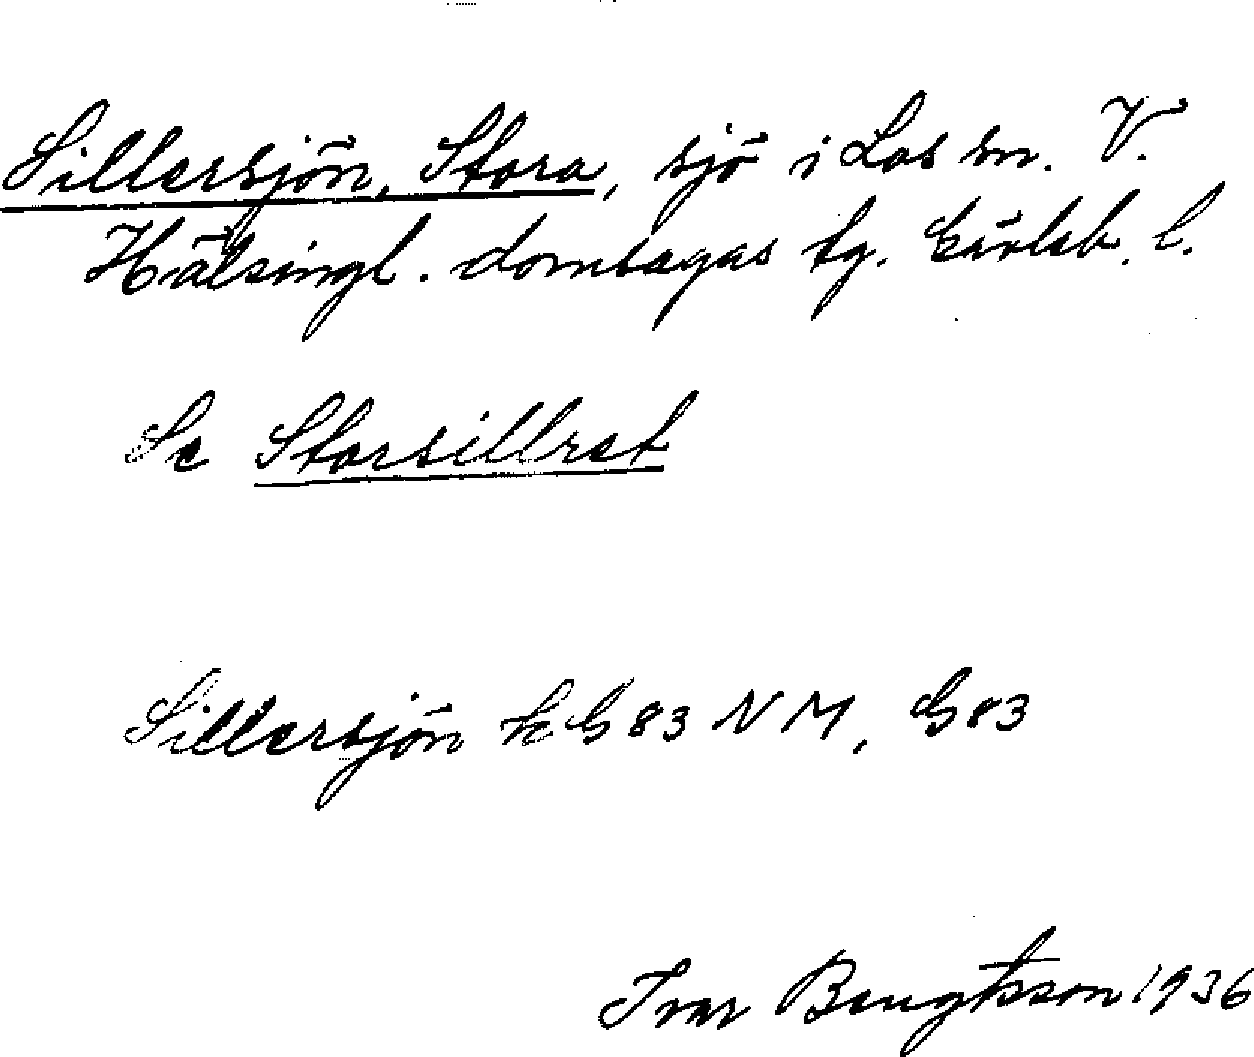 Sillersjön, Stora, sjö i Los sn. V.
Hälsingl. domsagas tg. Gävleb. l.
Se Storsillret
Sillersjön LG 83 NM, G 83
Ivar Bengtsson 1936